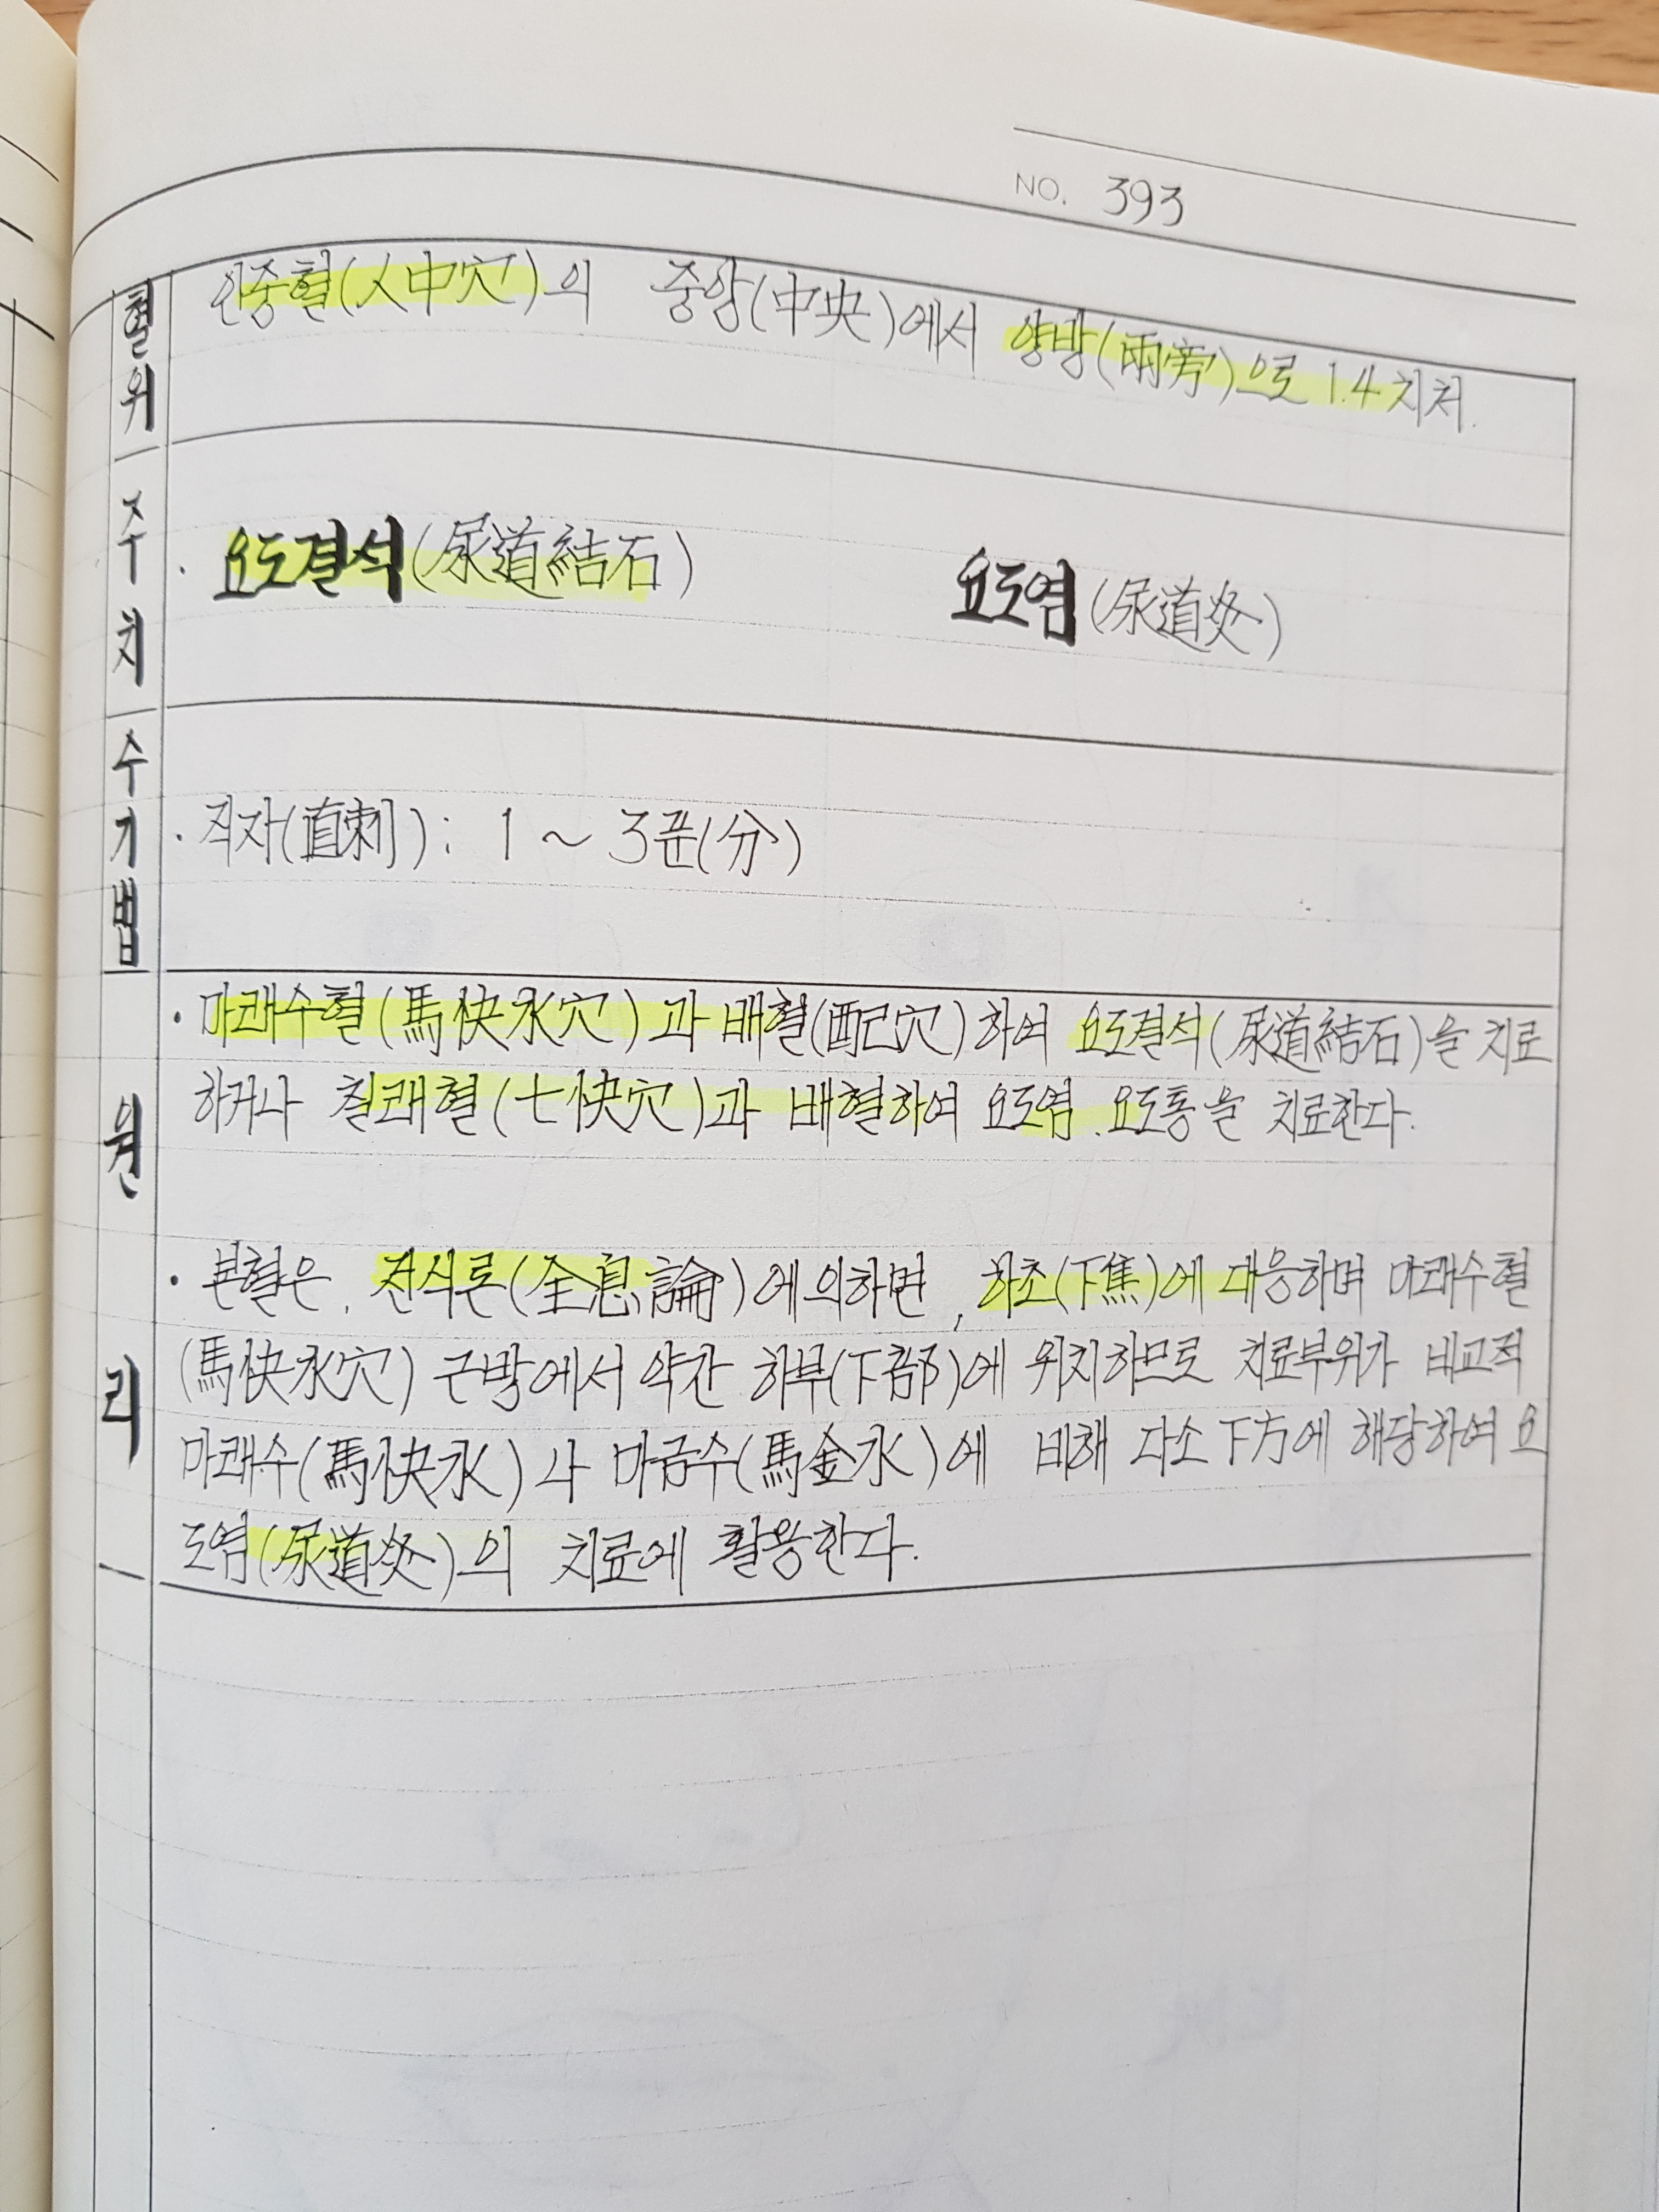 NO. 393
혈위
인중혈(人中穴)의 중앙(中央)에서 양방(兩旁)으로 1.4치처.
주치
· 요도결석(尿道結石) 요도염(尿道炎)
수기법
· 직자(直刺): 1 ~ 3푼(分)
원리
· 마쾌수혈(馬快水穴)과 배혈(配穴)하여 요도결석(尿道結石)을 치료
하거나 칠쾌혈(七快穴)과 배혈하여 요도염. 요도통을 치료한다.
· 본혈은, 전식론(全息論)에 의하면, 하초(下焦)에 대응하며 마쾌수혈
(馬快水穴) 근방에서 약간 하부(下部)에 위치하므로 치료부위가 비교적
마쾌수(馬快水)나 마금수(馬金水)에 비해 다소 下方에 해당하여 요
도염(尿道炎)의 치료에 활용한다.